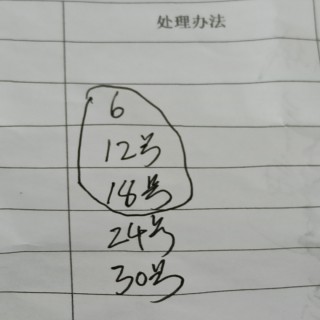 处理办法
6
12号
18号
24号
30号